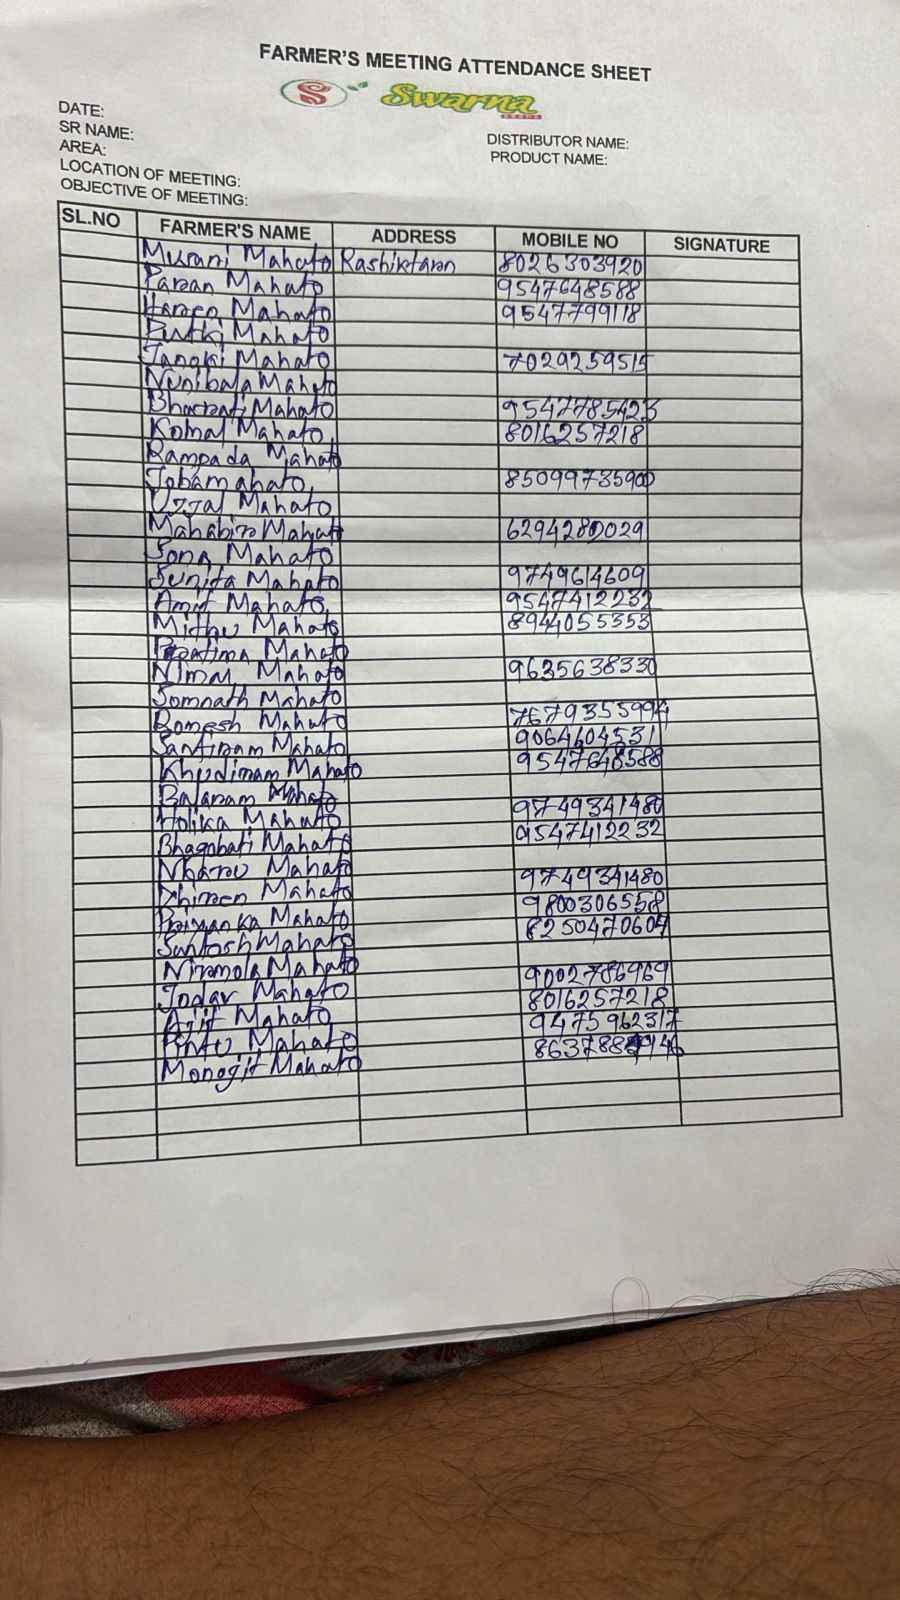 FARMER'S MEETING ATTENDANCE SHEET
S Swarna
DATE:
SR NAME:
AREA:
LOCATION OF MEETING:
OBJECTIVE OF MEETING:
DISTRIBUTOR NAME:
PRODUCT NAME:
SL.NO FARMER'S NAME ADDRESS MOBILE NO SIGNATURE
Murani Mahato Rashiktaran 8026303920
Paran Mahato 9547648588
Haren Mahato 9547799118
Putki Mahato
Jangki Mahato 7029259515
Nunibala Mahato
Bharati Mahato 9547785423
Komal Mahato 8016257218
Rampada Mahato
Joba mahato 8509973590
Uzzal Mahato
Mahabir Mahato 6294282029
Sona Mahato
Sunita Mahato 9749614609
Amit Mahato 9547412232
Mithu Mahato 8944055353
Pratima Mahato
Nimai Mahato 9635638330
Somnath Mahato
Romesh Mahato 7679355994
Santiram Mahato 9064604531
Khudiram Mahato 9547648588
Balaram Mahato
Holika Mahato 9749341480
Bhagobati Mahato 9547412232
Mahato
Dhiren Mahato 9749341480
Priyanka Mahato 9800306558
Santosh Mahato 8250470604
Nirmola Mahato
Jadav Mahato 9002786969
Ajit Mahato 8016257218
Pintu Mahato 9475962317
Monogit Mahato